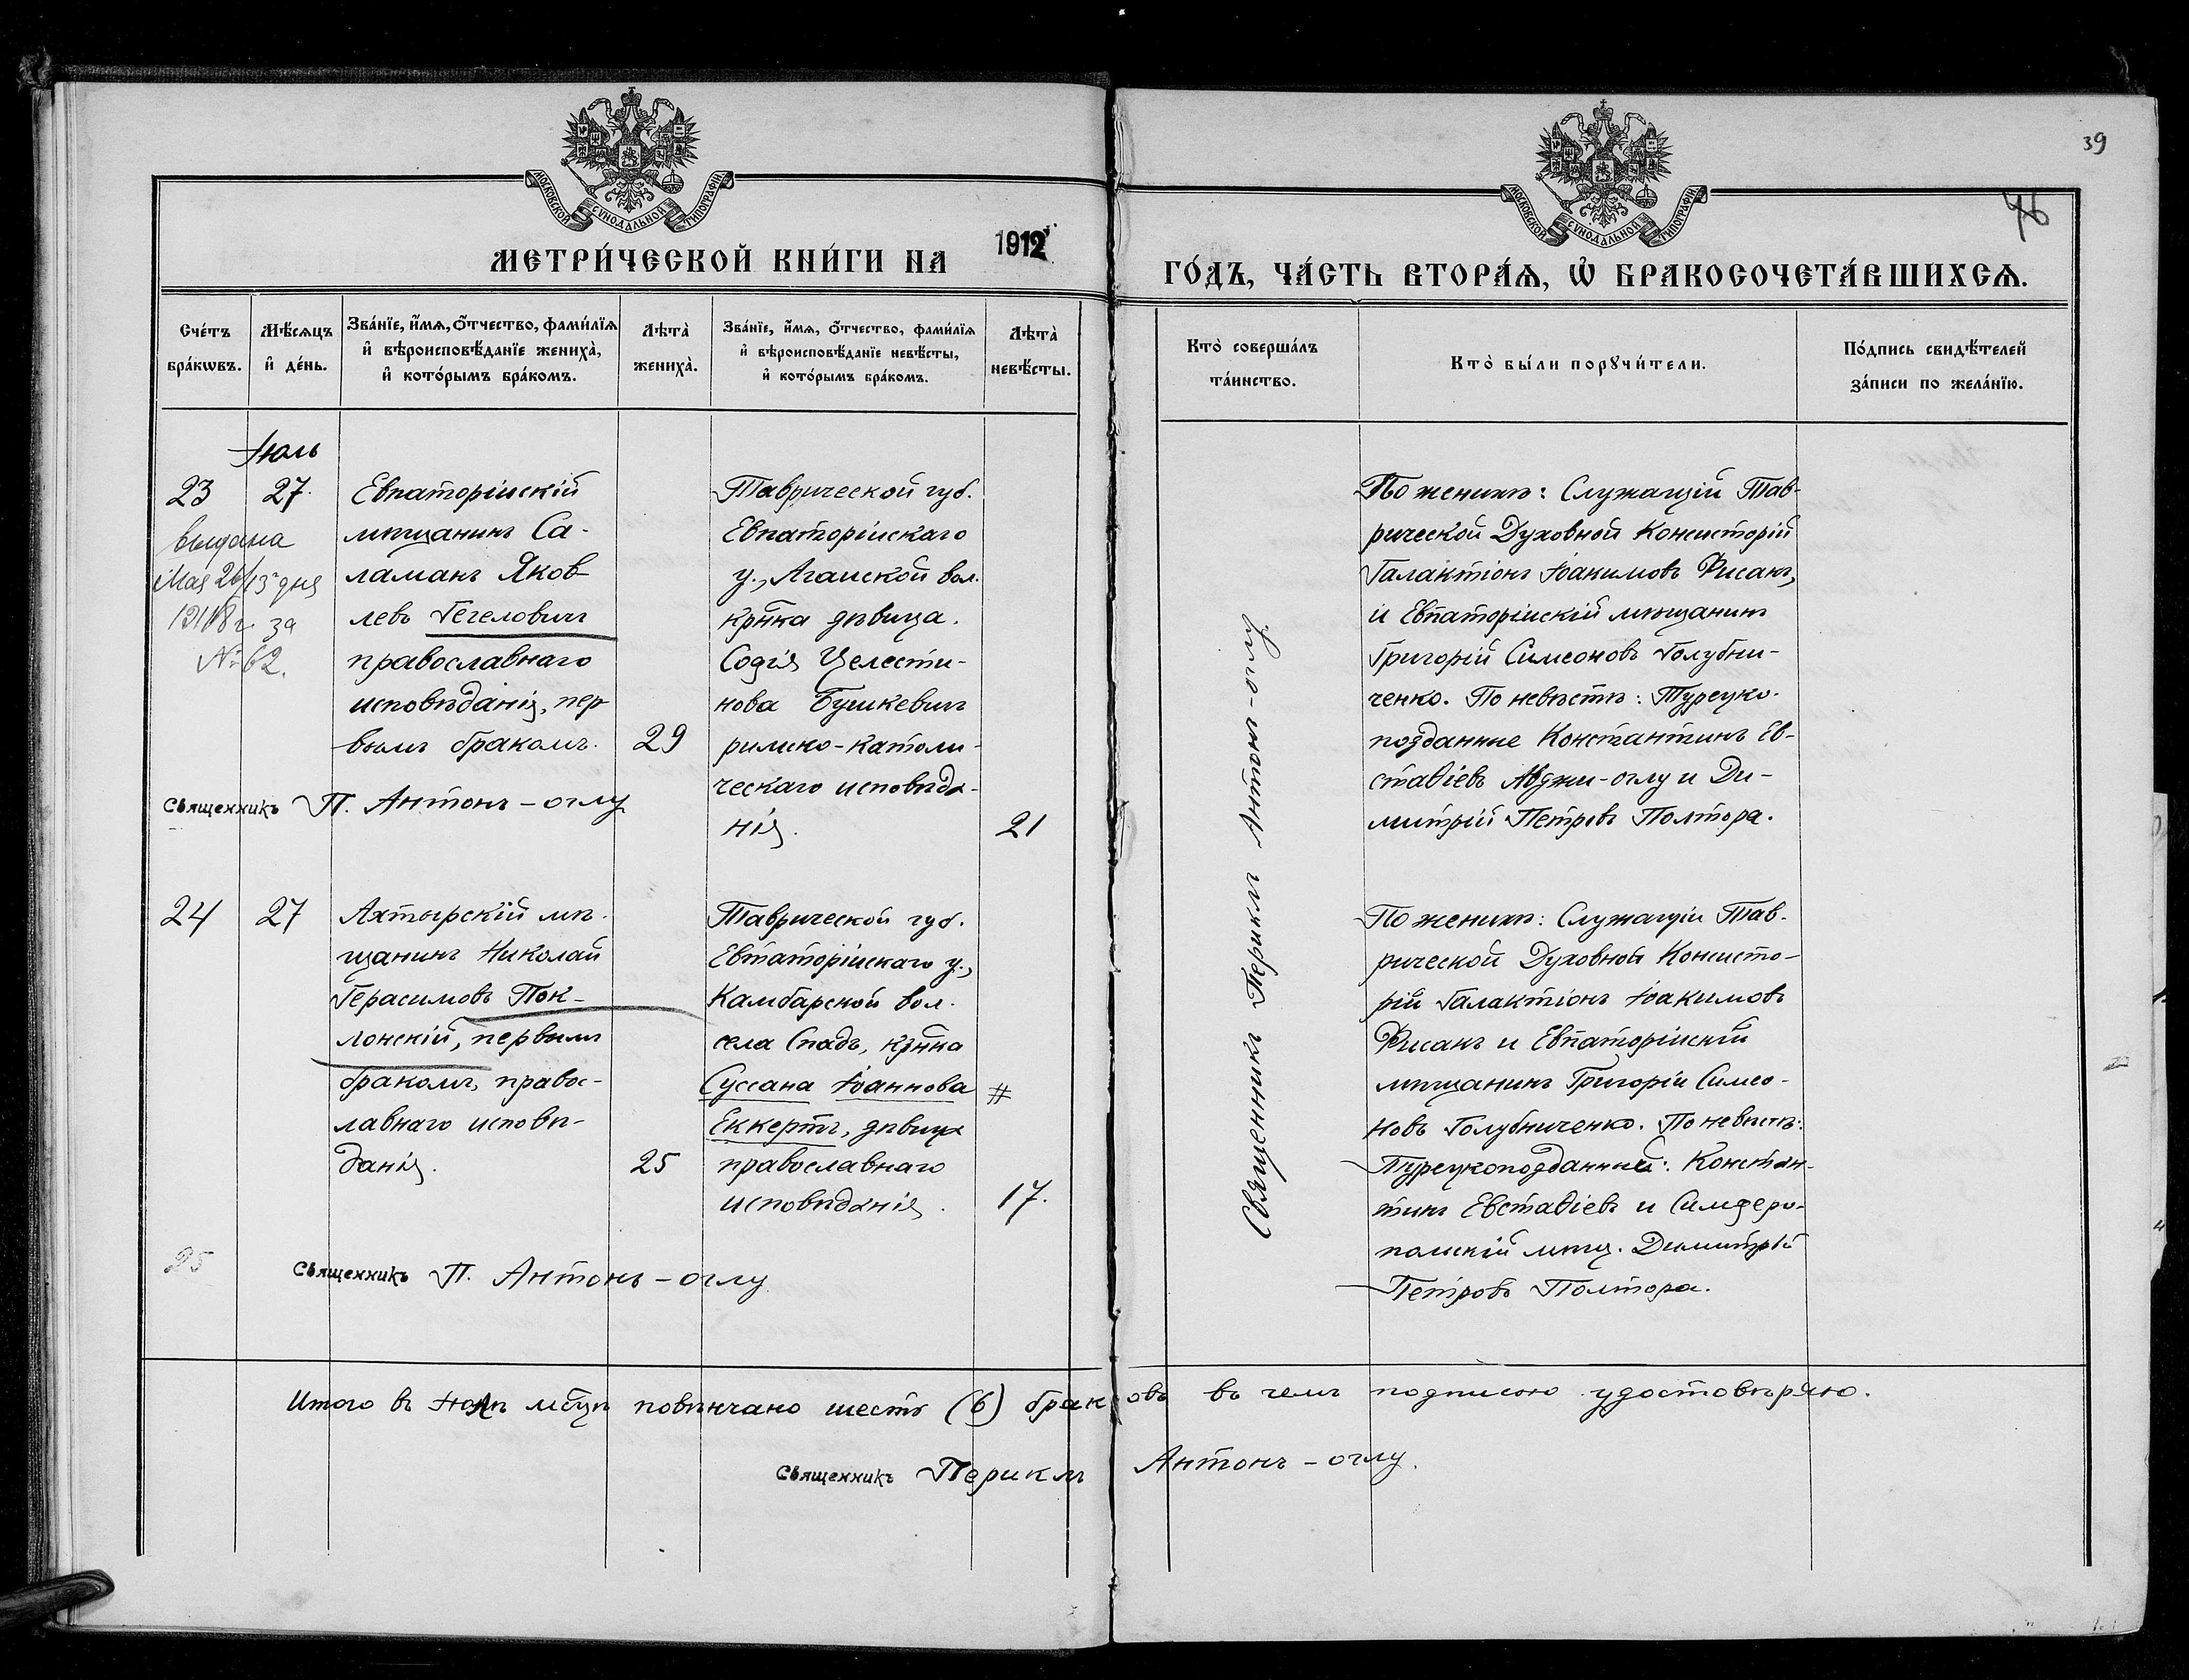 39
76
МОСКОВСКОЙ СѴНОДАЛЬНОЙ ТИПОГРАФІИ
МОСКОВСКОЙ СѴНОДАЛЬНОЙ ТИПОГРАФІИ
МЕТРИ́ЧЕСКОЙ КНИ́ГИ НА 1912 ГО́ДЪ, ЧА́СТЬ ВТОРА́Ѧ, Ѡ҆ БРАКОСОЧЕТА́ВШИХСѦ.
Сче́тъ
бра́кѡвъ.
Мѣ́сѧцъ
и҆ де́нь.
Зва́нїе, и҆́мѧ, о҆́тчество, фами́лїѧ
и҆ вѣроисповѣ́данїе жениха̀,
и҆ кото́рымъ бра́комъ.
Лѣта̀
жениха̀.
Зва́нїе, и҆́мѧ, о҆́тчество, фами́лїѧ
и҆ вѣроисповѣ́данїе невѣ́сты,
и҆ кото́рымъ бра́комъ.
Лѣта̀
невѣ́сты.
Кто̀ соверша́лъ
та́инство.
Кто̀ бы́ли порꙋчи́тели.
По́дпись свидѣ́телей
за́писи по жела́нїю.
Іюль
23
27.
выдана
Мая 26/13 дня
1918 г. за
№ 62.
Евпаторійскій
мѣщанинъ Са-
ламанъ Яков-
левъ Гегеловичъ
православнаго
исповѣданія, пер
вымъ бракомъ.
29
Таврической губ.
Евпаторійскаго
у., Агайской вол.
кр̃нка дѣвица.
Софія Целести-
нова Бушкевичъ
римско-католи-
ческаго исповѣда-
нія.
21
Священникъ П. Антонъ-оглу
По женихѣ: Служащій Тав-
рической Духовной Консисторіи
Галактіонъ Іоакимовъ Фисанъ,
и Евпаторійскій мѣщанинъ
Григорій Симеоновъ Голубни-
ченко. По невѣстѣ: Турецко-
подданные Константинъ Ев-
стаѳіевъ Авджи-оглу и Ди-
митрій Петровъ Полтора.
24
27
Ахтырскій мѣ-
щанинъ Николай
Герасимовъ Пок-
лонскій, первымъ
бракомъ, правос-
лавнаго исповѣ-
данія.
25
Таврической губ.
Евпаторійскаго у.,
Камбарской вол.
села Спадъ, кр̃нка
Суссана Іоаннова #
Еккертъ, дѣвица
православнаго
исповѣданія.
17.
Священникъ Периклъ Антонъ-оглу.
По женихѣ: Служащій Тав-
рической Духовной Консисто-
ріи Галактіонъ Іоакимовъ
Фисанъ и Евпаторійскій
мѣщанинъ Григорій Симео-
новъ Голубниченко. По невѣстѣ:
Турецкоподданный: Констан-
тинъ Евстаѳіевъ и Симферо-
польскій мѣщ. Димитрій
Петровъ Полтора.
25
Священникъ П. Антонъ-оглу
Итого въ Іюлѣ мѣ̃цѣ повѣнчано шесть (6) браковъ въ чемъ подписью удостовѣряю.
Священникъ Периклъ Антонъ-оглу.